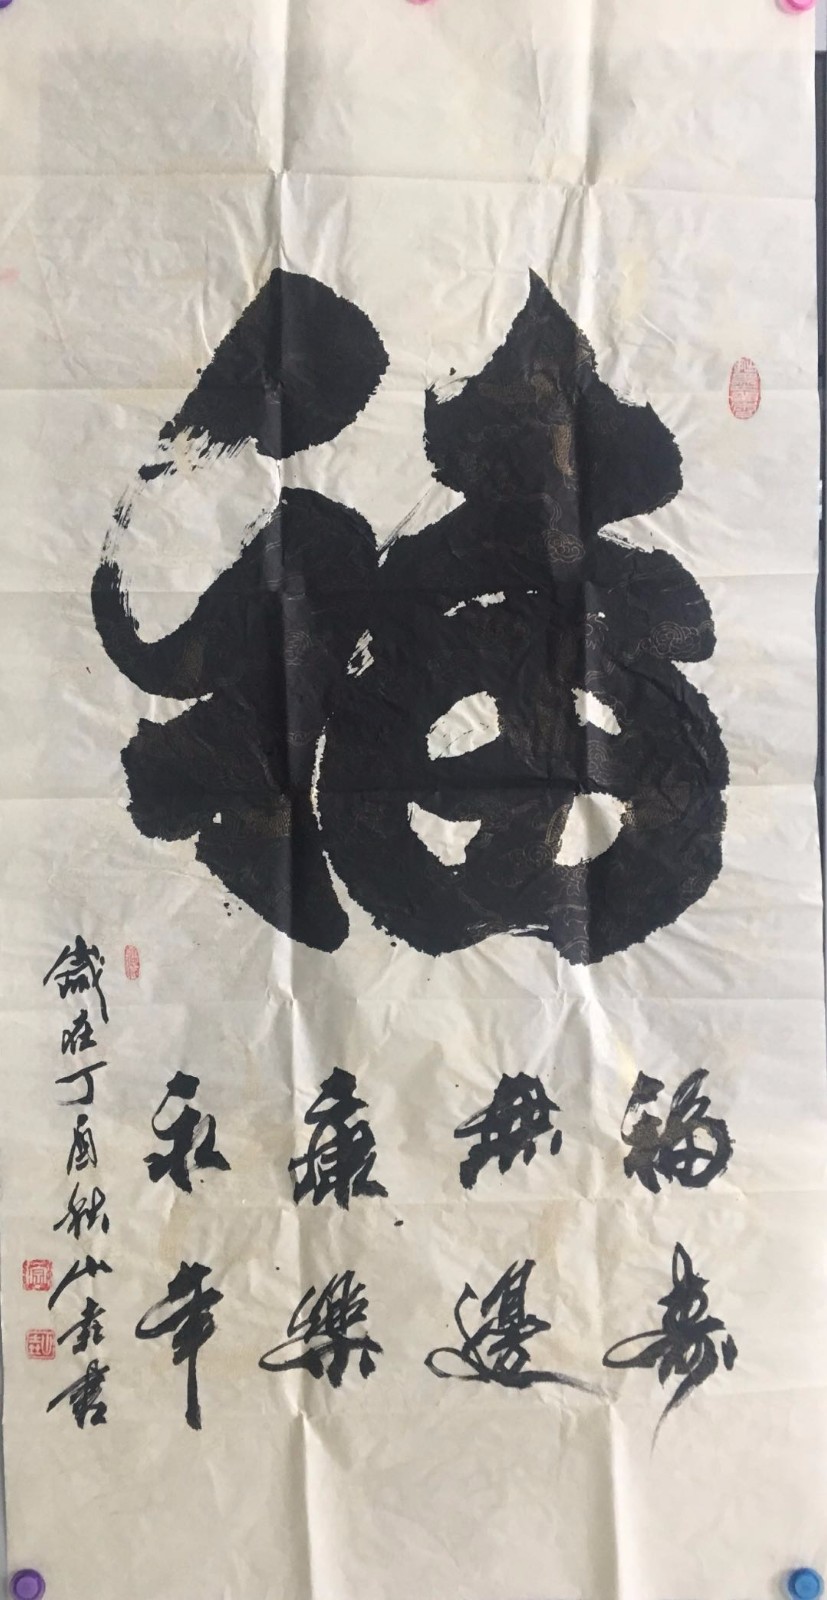 福
福壽
無邊
康樂
永年
歲在丁酉秋山奇書